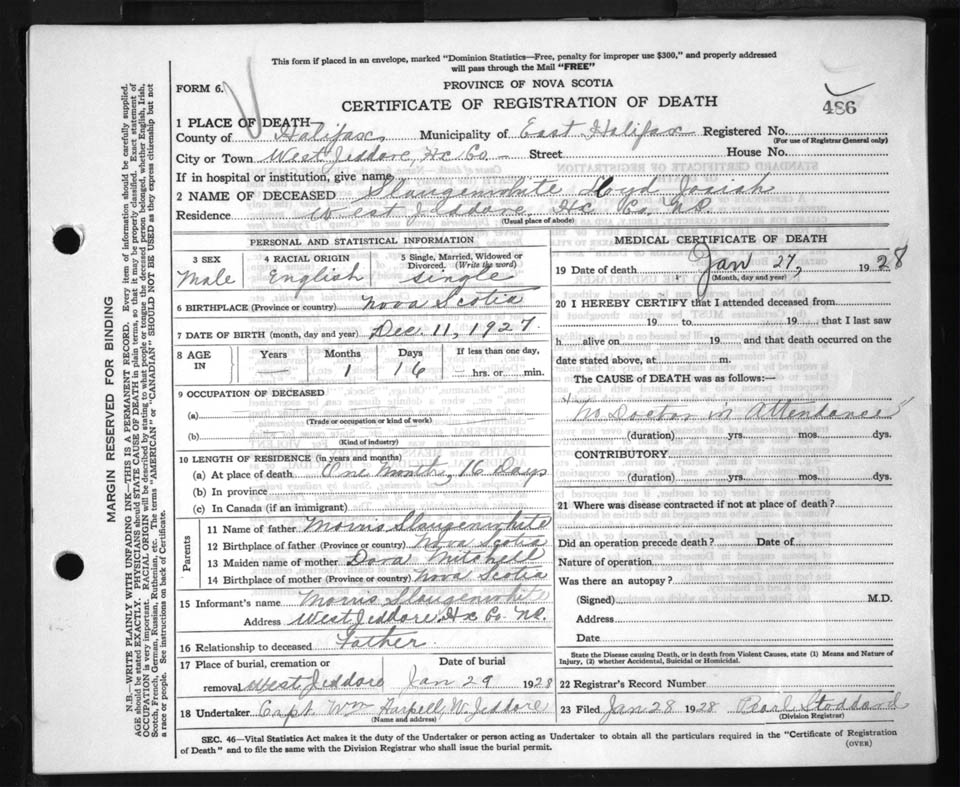 This form if placed in an envelope, marked "Dominion Statistics—Free, penalty for improper use $300," and properly addressed
will pass through the Mail "FREE"
FORM 6.
PROVINCE OF NOVA SCOTIA
CERTIFICATE OF REGISTRATION OF DEATH
486
1 PLACE OF DEATH
County of Halifax Municipality of East Halifax Registered No.
(For use of Registrar General only)
City or Town West Jeddore, Hx Co. Street House No.
If in hospital or institution, give name
2 NAME OF DECEASED Slaugenwhite Josiah
Residence West Jeddore, Hx Co. N.S.
(Usual place of abode)
PERSONAL AND STATISTICAL INFORMATION
3 SEX 4 RACIAL ORIGIN 5 Single, Married, Widowed or
Divorced. (Write the word)
Male English single
6 BIRTHPLACE (Province or country) Nova Scotia
7 DATE OF BIRTH (month, day and year) Dec. 11, 1927.
8 AGE IN Years Months Days If less than one day,
— 1 16 — hrs. or min.
9 OCCUPATION OF DECEASED
(a)
(Trade or occupation or kind of work)
(b)
(Kind of industry)
10 LENGTH OF RESIDENCE (in years and months)
(a) At place of death One Month, 16 Days
(b) In province
(c) In Canada (if an immigrant)
Parents
11 Name of father Morris Slaugenwhite
12 Birthplace of father (Province or country) Nova Scotia
13 Maiden name of mother Dora Mitchell
14 Birthplace of mother (Province or country) Nova Scotia
15 Informant's name Morris Slaugenwhite
Address West Jeddore, Hx Co. N.S.
16 Relationship to deceased Father
17 Place of burial, cremation or Date of burial
removal West Jeddore Jan 29 1928
18 Undertaker Capt. Wm Harpell W. Jeddore
(Name and address)
MEDICAL CERTIFICATE OF DEATH
19 Date of death Jan 27, 1928
(Month, day and year)
20 I HEREBY CERTIFY that I attended deceased from
19 to 19 that I last saw
h alive on 19 and that death occurred on the
date stated above, at m.
The CAUSE of DEATH was as follows:—
"No Doctor in Attendance"
(duration) yrs. mos. dys.
CONTRIBUTORY
(duration) yrs. mos. dys.
21 Where was disease contracted if not at place of death?
Did an operation precede death? Date of
Nature of operation
Was there an autopsy?
(Signed) M.D.
Address
Date
State the Disease causing Death, or in death from Violent Causes, state (1) Means and Nature of
Injury, (2) whether Accidental, Suicidal or Homicidal.
22 Registrar's Record Number
23 Filed Jan 28 1928 Pearl Stoddard
(Division Registrar)
SEC. 46—Vital Statistics Act makes it the duty of the Undertaker or person acting as Undertaker to obtain all the particulars required in the "Certificate of Registration
of Death" and to file the same with the Division Registrar who shall issue the burial permit.
(OVER)
MARGIN RESERVED FOR BINDING
N.B.—WRITE PLAINLY WITH UNFADING INK—THIS IS A PERMANENT RECORD. Every item of information should be carefully supplied.
AGE should be stated EXACTLY. PHYSICIANS should STATE CAUSE OF DEATH in plain terms, so that it may be properly classified. Exact statement of
OCCUPATION is very important. RACIAL ORIGIN will be described by stating to what people or tongue the deceased person belonged, whether English, Irish,
Scotch, French, German, Russian, Ruthenian, etc. The terms "AMERICAN" or "CANADIAN" SHOULD NOT BE USED as they express citizenship but not
a race or people. See instructions on back of Certificate.